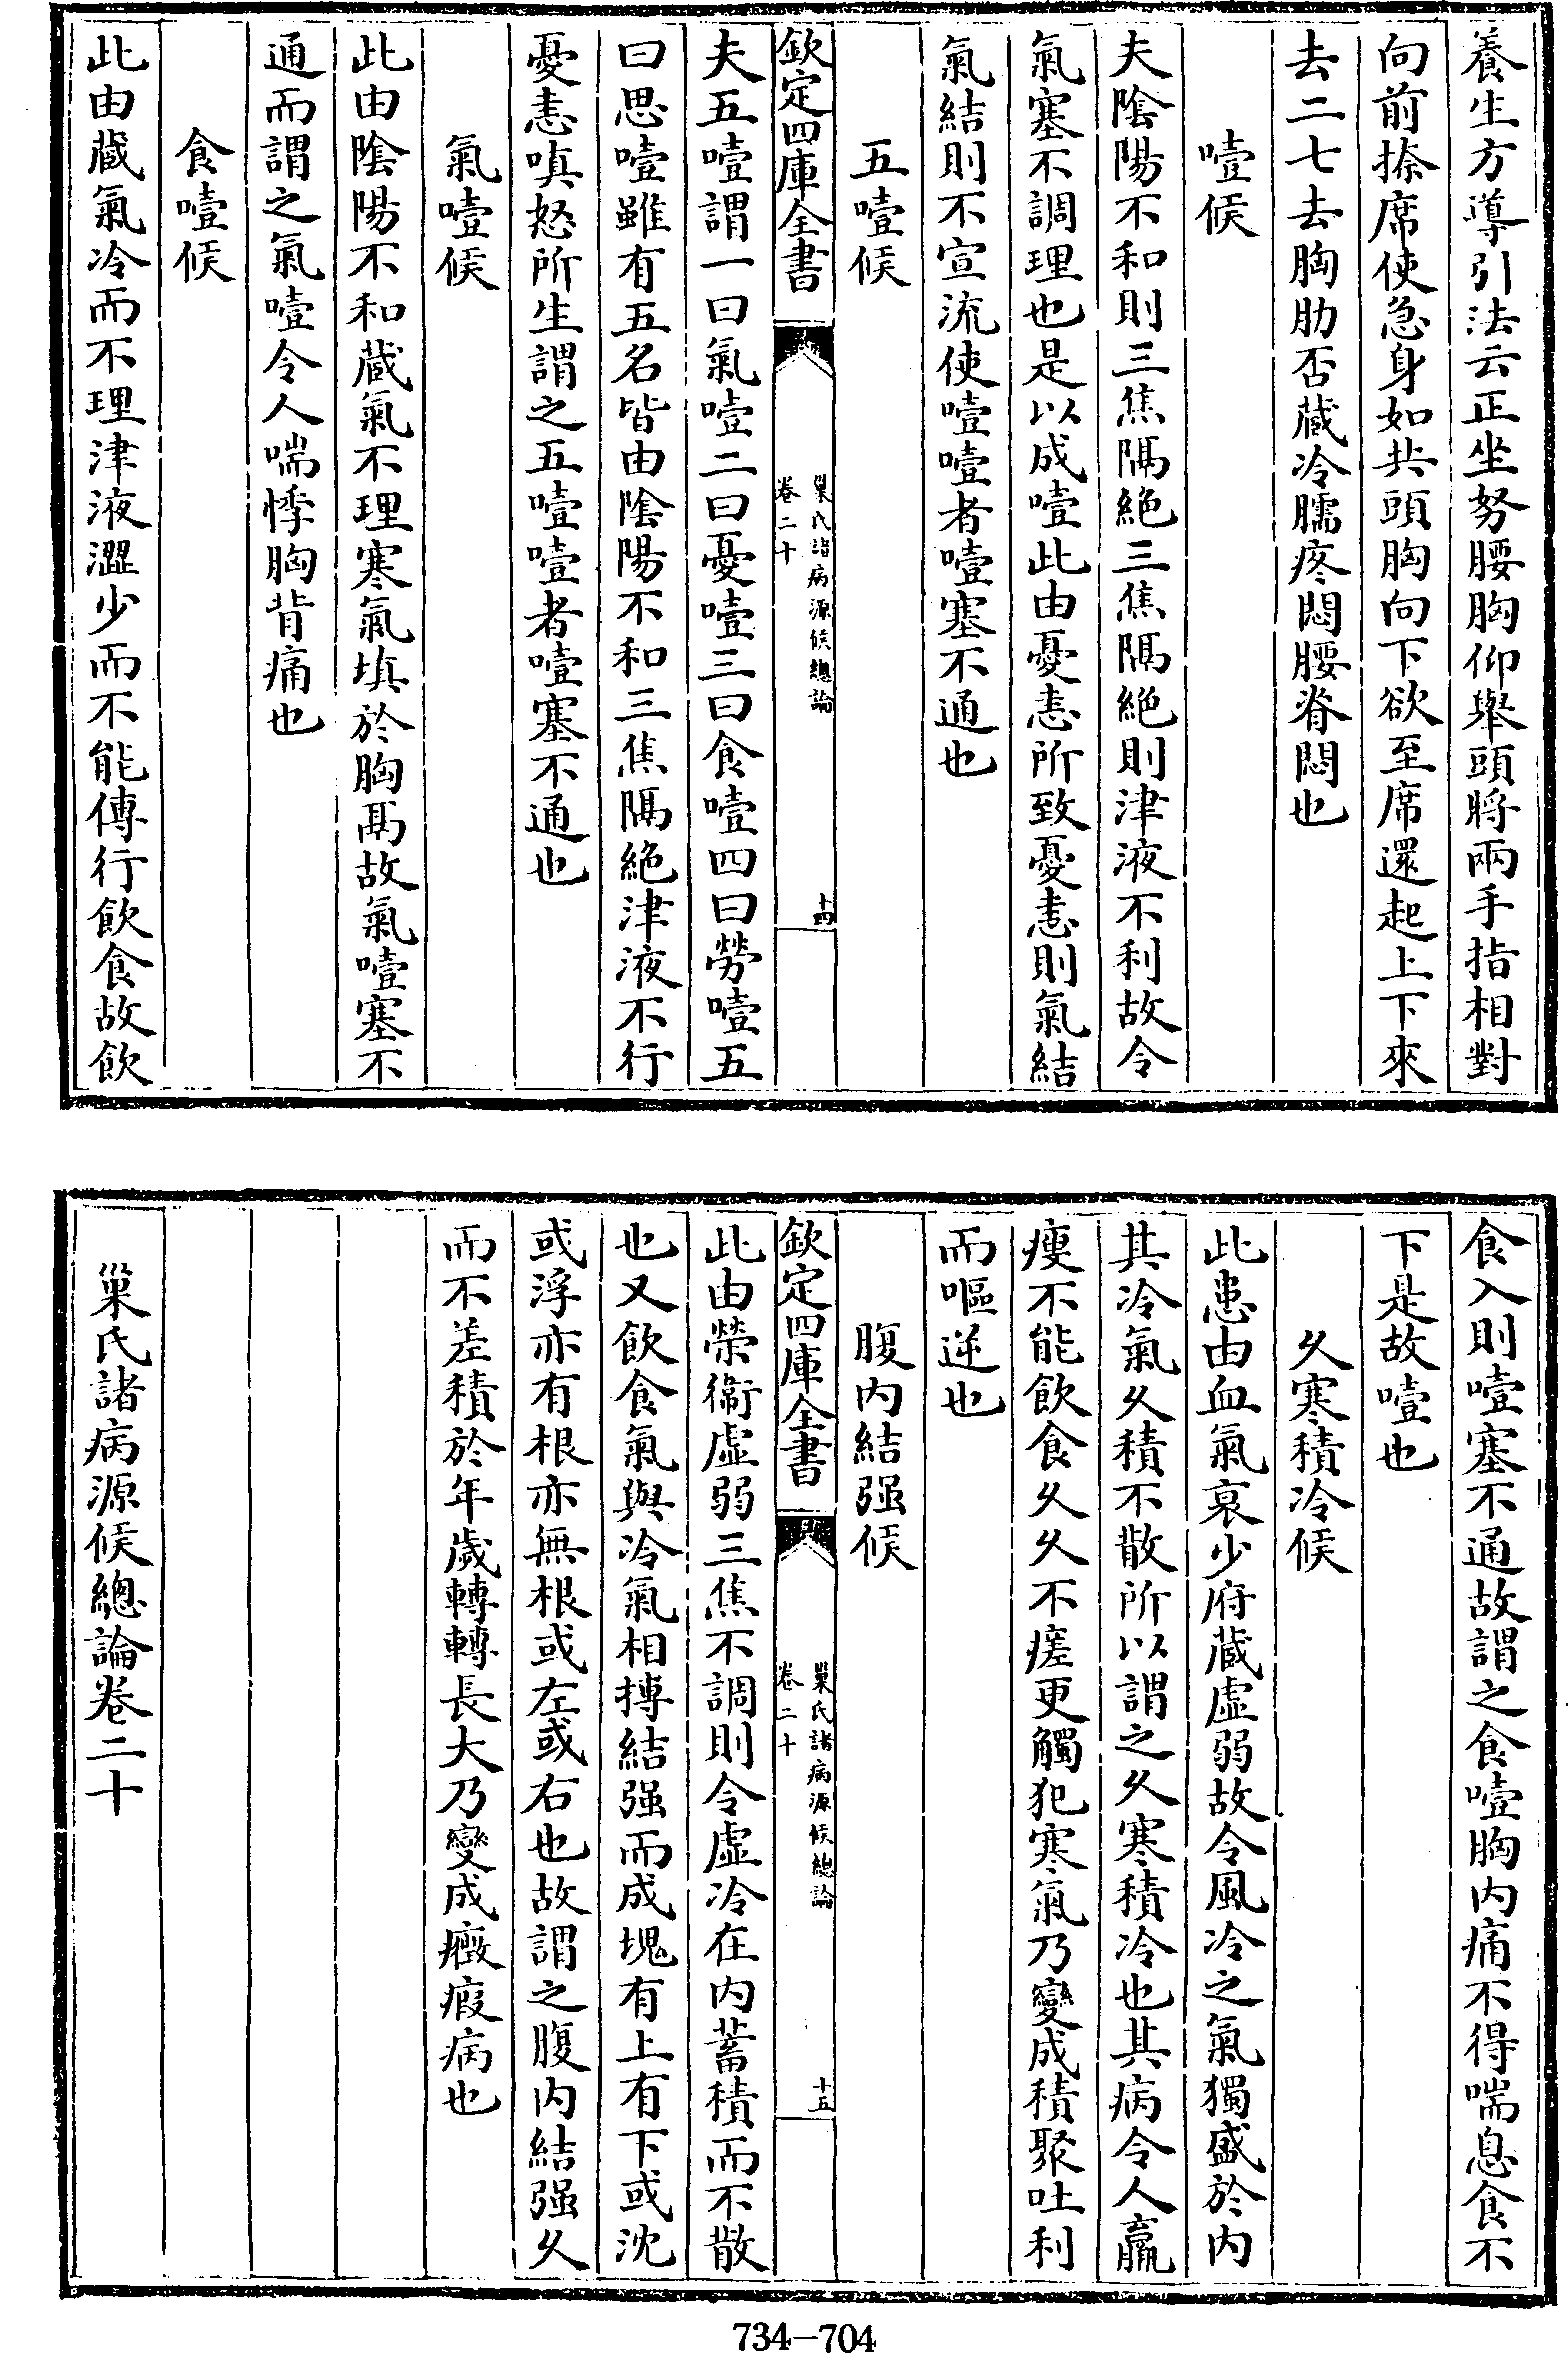 養生方導引法云正坐努腰胸仰舉頭將兩手指相對
向前捺席使急身如共頭胸向下欲至席還起上下來
去二七去胸肋否蔵冷臑疼悶腰脊悶也
噎候
夫隂陽不和則三焦隔絶三焦隔絶則津液不利故令
氣塞不調理也是以成噎此由憂恚所致憂恚則氣結
氣結則不宣流使噎噎者噎塞不通也
五噎候
欽定四庫全書
巢氏諸病源候總論
卷二十
十四
夫五噎謂一曰氣噎二曰憂噎三曰食噎四曰勞噎五
曰思噎雖有五名皆由隂陽不和三焦隔絶津液不行
憂恚嗔怒所生謂之五噎噎者噎塞不通也
氣噎候
此由隂陽不和蔵氣不理寒氣填於胸鬲故氣噎塞不
通而謂之氣噎令人喘悸胸背痛也
食噎候
此由蔵氣冷而不理津液澀少而不能傳行飲食故飲
食入則噎塞不通故謂之食噎胸内痛不得喘息食不
下是故噎也
乆寒積冷候
此患由血氣衰少府蔵虛弱故令風冷之氣獨盛於内
其冷氣乆積不散所以謂之乆寒積冷也其病令人羸
瘦不能飲食乆乆不瘥更觸犯寒氣乃變成積聚吐利
而嘔逆也
腹内結强候
欽定四庫全書
巢氏諸病源候總論
卷二十
十五
此由榮衞虛弱三焦不調則令虛冷在内蓄積而不散
也又飲食氣與冷氣相搏結强而成塊有上有下或沈
或浮亦有根亦無根或左或右也故謂之腹内結强乆
而不差積於年歲轉轉長大乃變成癥瘕病也
巢氏諸病源候總論卷二十
734-704